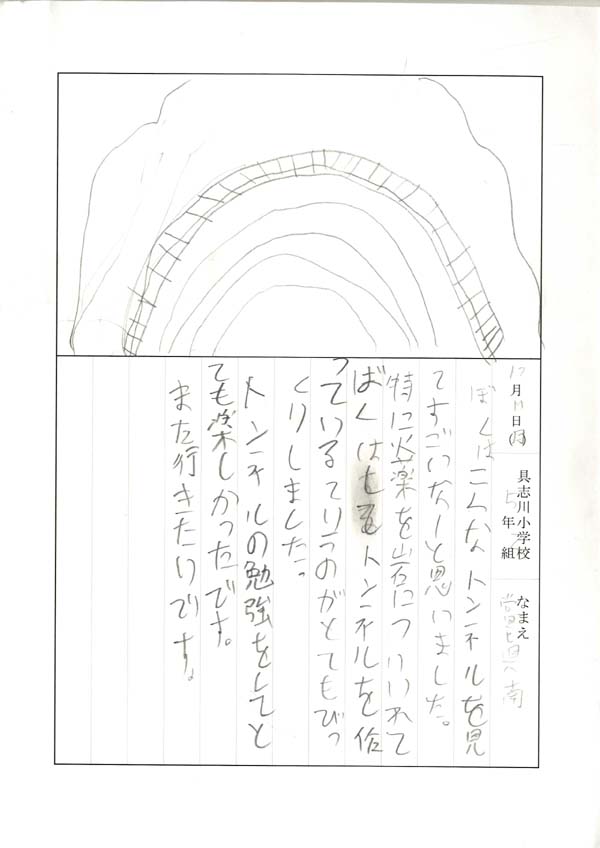 12月11日(月)
具志川小学校
5年 組
なまえ
ぼくはこんなトンネルを見
てすごいなーと思いました。
特に火薬を岩についいれて
ばくはもしトンネルを作
っているていうのがとてもびっ
くりしました。
トンネルの勉強をしてと
ても楽しかったです。
また行きたいです。